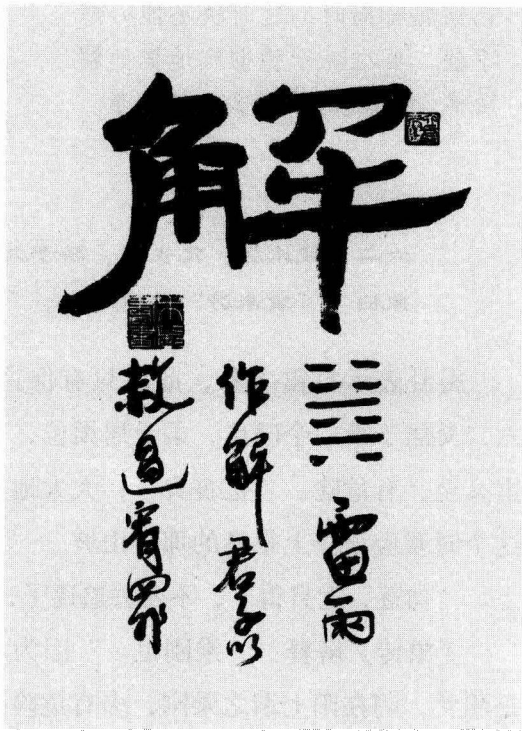 解
雷雨
作解君子以
赦過宥罪